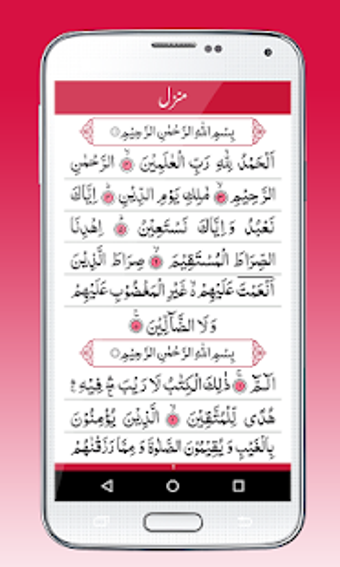 منزل
بِسْمِ اللهِ الرَّحْمٰنِ الرَّحِيْمِ
اَلْحَمْدُ لِلّٰهِ رَبِّ الْعٰلَمِيْنَ ۙ الرَّحْمٰنِ
الرَّحِيْمِ ۙ مٰلِكِ يَوْمِ الدِّيْنِ ۙ اِيَّاكَ
نَعْبُدُ وَ اِيَّاكَ نَسْتَعِيْنُ ۙ اِهْدِنَا
الصِّرَاطَ الْمُسْتَقِيْمَ ۙ صِرَاطَ الَّذِيْنَ
اَنْعَمْتَ عَلَيْهِمْ ۙ غَيْرِ الْمَغْضُوْبِ عَلَيْهِمْ
وَ لَا الضَّآلِّيْنَ
بِسْمِ اللهِ الرَّحْمٰنِ الرَّحِيْمِ
الٓمّٓ ۚ ذٰلِكَ الْكِتٰبُ لَا رَيْبَ ۛ فِيْهِ ۛ
هُدًى لِّلْمُتَّقِيْنَ ۙ الَّذِيْنَ يُؤْمِنُوْنَ
بِالْغَيْبِ وَ يُقِيْمُوْنَ الصَّلٰوةَ وَ مِمَّا رَزَقْنٰهُمْ